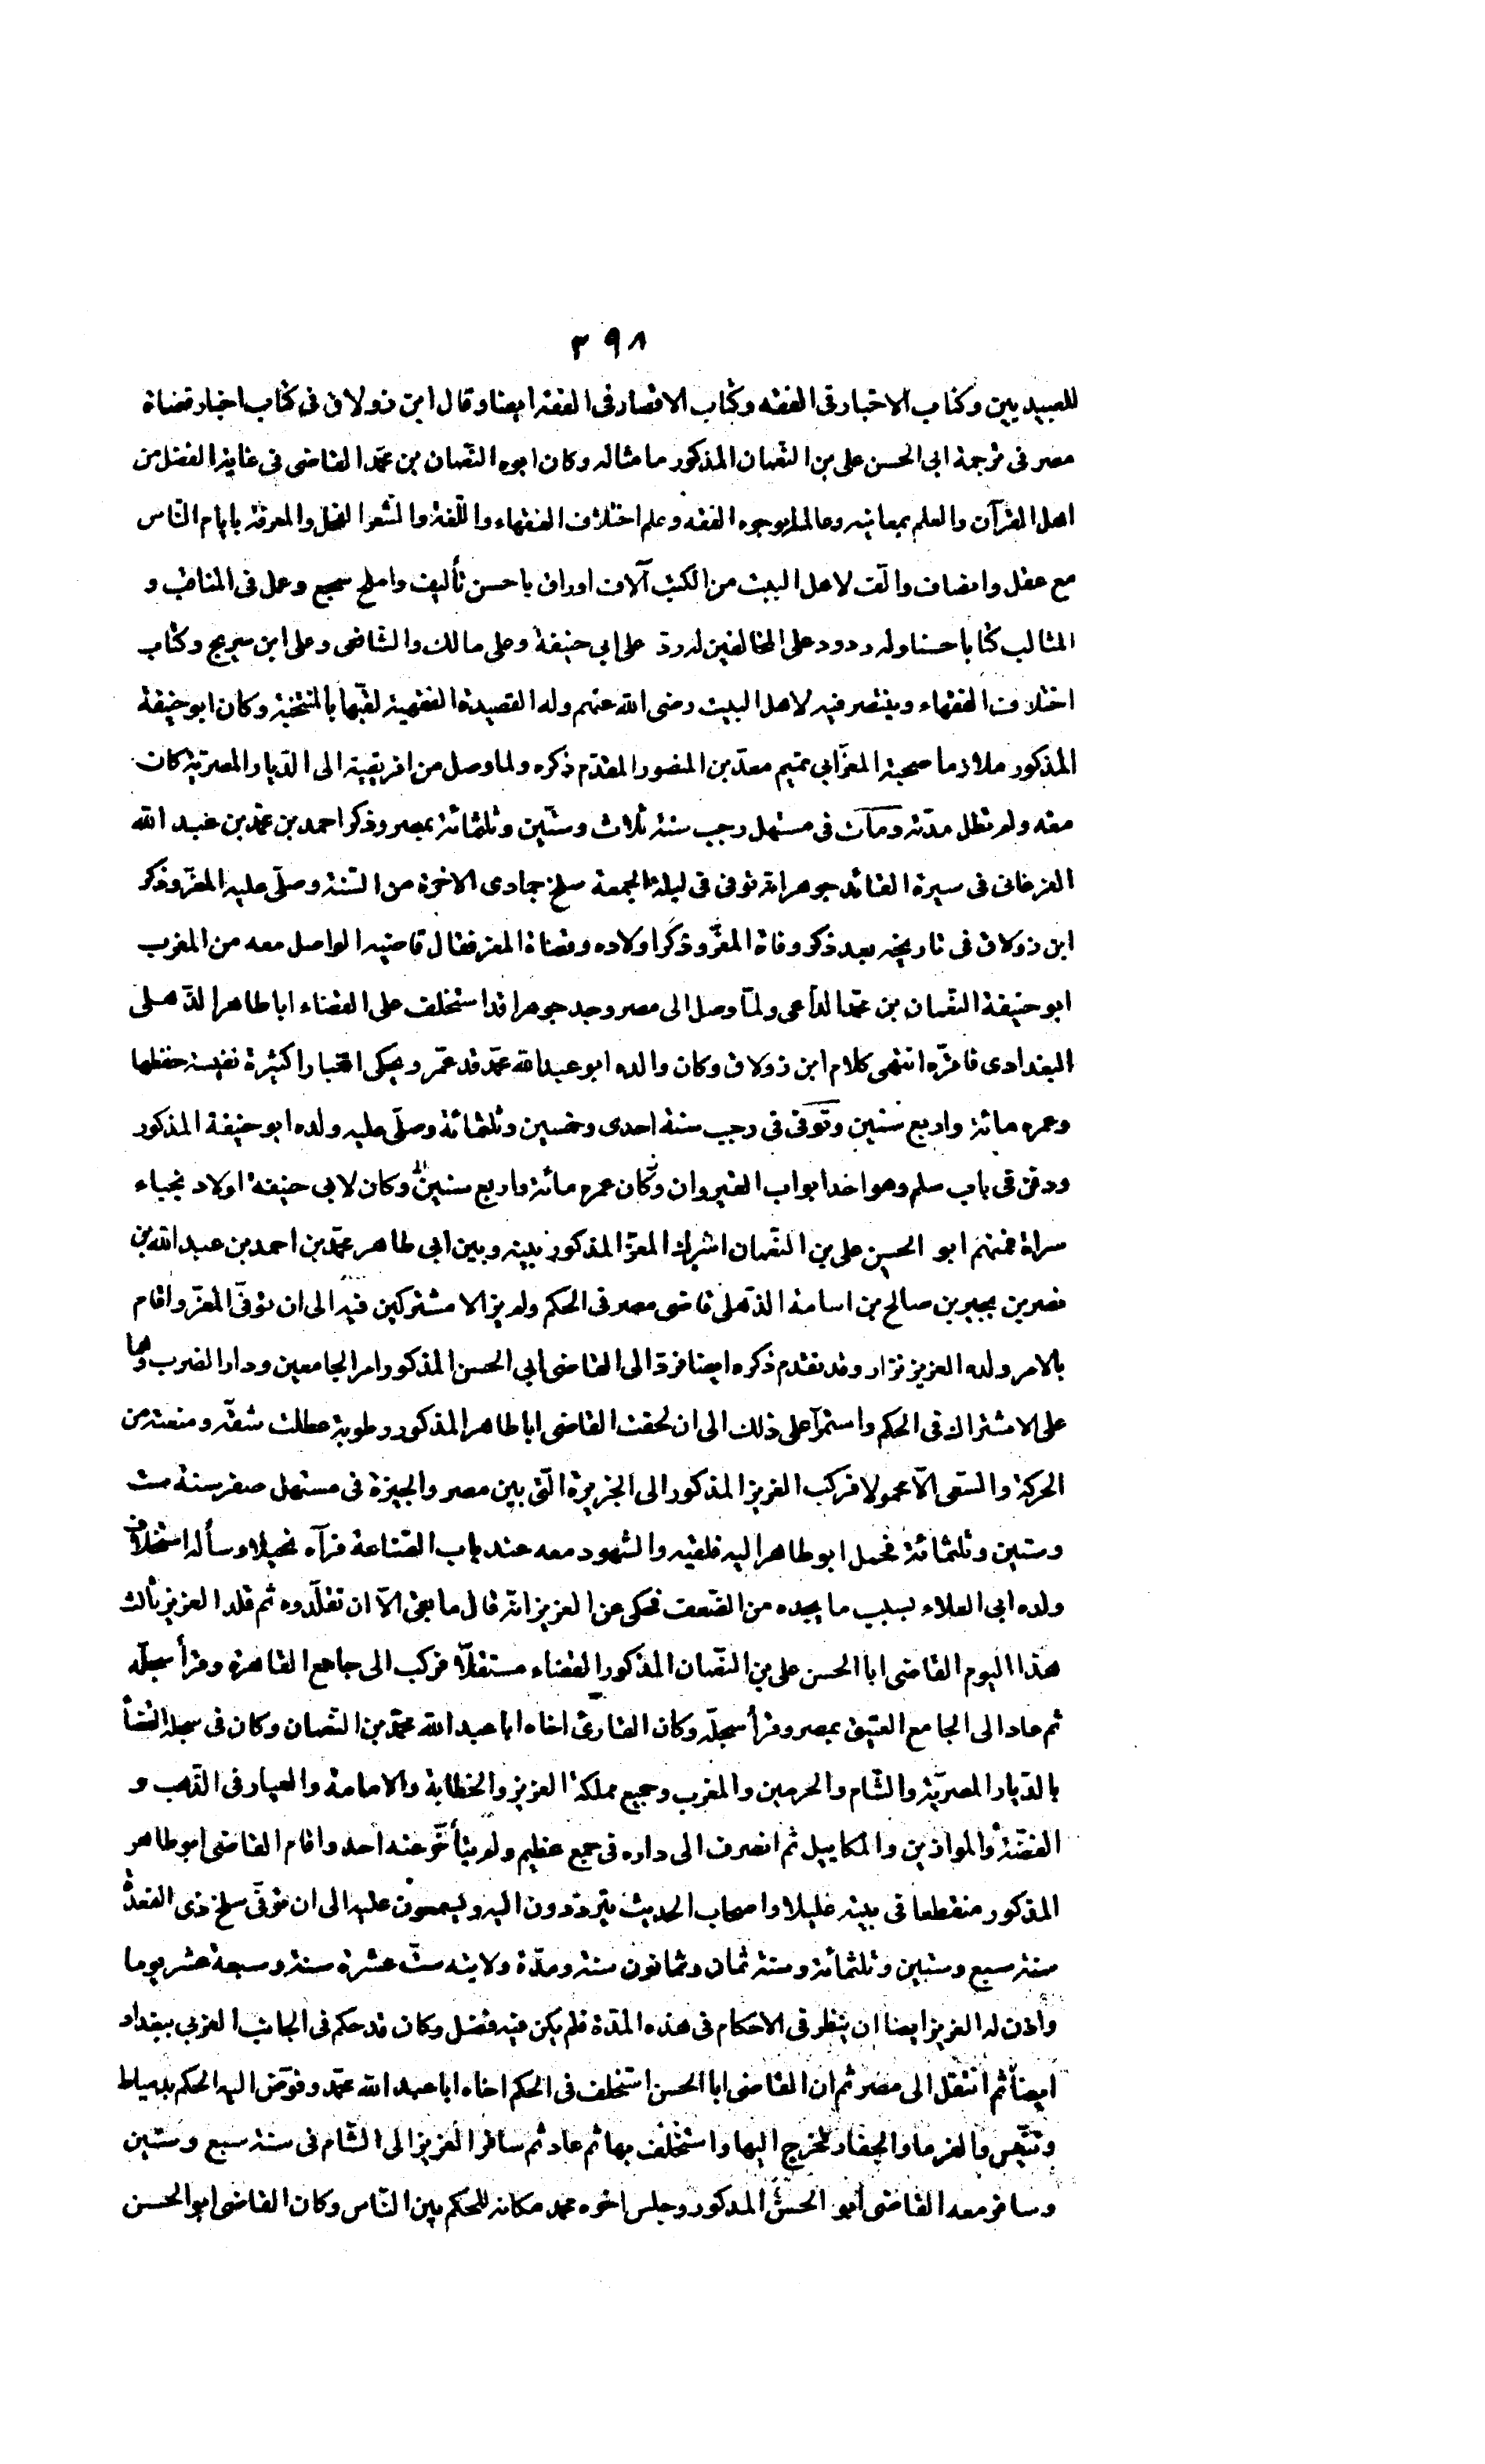 ٣٩٨
للعبيديين وكتاب الاخبار فى الفقه وكتاب الاقتصار فى الفقه ايضا وقال ابن زولاق فى كتاب اخبار قضاة
مصر فى ترجمة ابى الحسن على بن النعمان المذكور ما مثاله وكان ابوه النعمان بن محمد القاضى فى غاية الفضل من
اهل القرآن والعلم بمعانيه وعالما بوجوه الفقه وعلم اختلاف الفقهاء واللّغة والشعر الفحل والمعرفة بايام النّاس
مع عقل وانصاف والّف لاهل البيت من الكتب آلاف اوراق باحسن تأليف واملح سجع وعمل فى المناقب و
المثالب كتابا حسنا وله ردود على المخالفين له ردّ على ابى حنيفة وعلى مالك والشّافعى وعلى ابن سريج وكتاب
اختلاف الفقهاء وينتصر فيه لاهل البيت رضى الله عنهم وله القصيدة الفقهية لقّبها بالمنتخبة وكان ابو حنيفة
المذكور ملازما صحبة المعزّ ابى تميم معدّ بن المنصور المقدّم ذكره ولما وصل من افريقية الى الدّيار المصريّة كان
معه ولم تطل مدّته ومات فى مستهل رجب سنة ثلاث وستّين وثلثمائة بمصر وذكر احمد بن محمّد بن عبد الله
الفرغانى فى سيرة القائد جوهر انه توفى فى ليلة الجمعة سلخ جمادى الاخرة من السّنة وصلّى عليه المعزّ وذكر
ابن زولاق فى تاريخه بعد ذكر وفاة المعزّ وذكر اولاده وقضاة المعز فقال قاضيه الواصل معه من المغرب
ابو حنيفة النّعمان بن محمّد الداعى ولمّا وصل الى مصر وجد جوهرا قد استخلف على القضاء ابا طاهر الذّهلى
البغدادى فاقرّه انتهى كلام ابن زولاق وكان والده ابو عبد الله محمّد قد عمّر ويحكى اخبارا كثيرة نفيسة حفظها
وعمره مائة واربع سنين وتوفّى فى رجب سنة احدى وخمسين وثلثمائة وصلّى عليه ولده ابو حنيفة المذكور
ودفن فى باب سلم وهو احد ابواب القيروان وكان عمره مائة واربع سنين وكان لابى حنيفة اولاد نجباء
سراة فمنهم ابو الحسين على بن النّعمان اشرك المعزّ المذكور بينه وبين ابى طاهر محمّد بن احمد بن عبد الله بن
نصر بن بجير بن صالح بن اسامة الذّهلى قاضى مصر فى الحكم ولم يزالا مشتركين فيه الى ان توفّى المعزّ واقام
بالامر ولده العزيز نزار وقد تقدم ذكره ايضا فردّ الى القاضى ابى الحسن المذكور امر الجامعين ودار الضرب وهما
على الاشتراك فى الحكم واستمرّا على ذلك الى ان لحقت القاضى ابا طاهر المذكور رطوبة عطلت شقّه ومنعته من
الحركة والسّعى الّا محمولا فركب العزيز المذكور الى الجزيرة الّتى بين مصر والجيزة فى مستهل صفر سنة ست
وستين وثلثمائة فحمل ابو طاهر اليه فلقيه والشهود معه عند باب الصّناعة فرآه نحيلا وسأله استخلاف
ولده ابى العلاء بسبب ما يجده من الضّعف فحكى عن العزيز انّه قال ما بقى الّا ان تقلّدوه ثم قلد العزيز ثالث
هذا اليوم القاضى ابا الحسن على بن النّعمان المذكور القضاء مستقلّا فركب الى جامع القاهرة وقرأ سجلّه
ثم عاد الى الجامع العتيق بمصر وقرأ سجلّه وكان القارئ اخاه ابا عبد الله محمّد بن النّعمان وكان فى سجله القضأ
بالدّيار المصريّة والشّام والحرمين والمغرب وجميع مملكة العزيز والخطابة والامامة والعيار فى الذّهب و
الفضّة والموازين والمكاييل ثم انصرف الى داره فى جمع عظيم ولم يتأخّر عنه احد واقام القاضى ابو طاهر
المذكور منقطعا فى بيته عليلا واصحاب الحديث يتردّدون اليه ويسمعون عليه الى ان توفّى سلخ ذى القعدة
سنة سبع وستين وثلثمائة وسنه ثمان وثمانون سنة ومدّة ولايته ستّ عشرة سنة وسبعة عشر يوما
واذن له العزيز ايضا ان ينظر فى الاحكام فى هذه المدّة فلم يكن فيه فضل وكان قد حكم فى الجانب الغربى ببغداد
ايضا ثم انتقل الى مصر ثم ان القاضى ابا الحسن استخلف فى الحكم اخاه ابا عبد الله محمّد وفوّض اليه الحكم بدمياط
وتنّيس والفرما والجفار فخرج اليها واستخلف بها ثم عاد ثم سافر العزيز الى الشّام فى سنة سبع وستين
وسافر معه القاضى ابو الحسن المذكور وجلس اخوه محمد مكانه للحكم بين النّاس وكان القاضى ابو الحسن